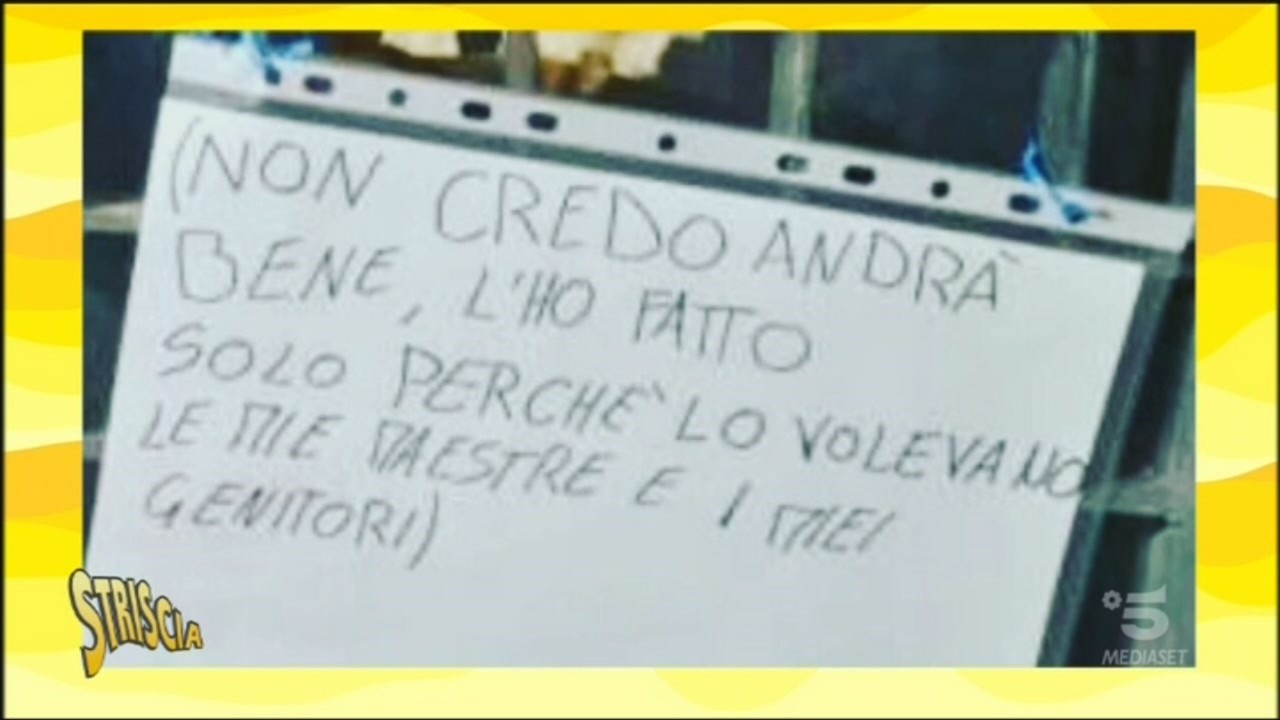 (NON CREDO ANDRÀ
BENE, L'HO FATTO
SOLO PERCHÈ LO VOLEVANO
LE MIE MAESTRE E I MIEI
GENITORI)
STRISCIA
5
MEDIASET